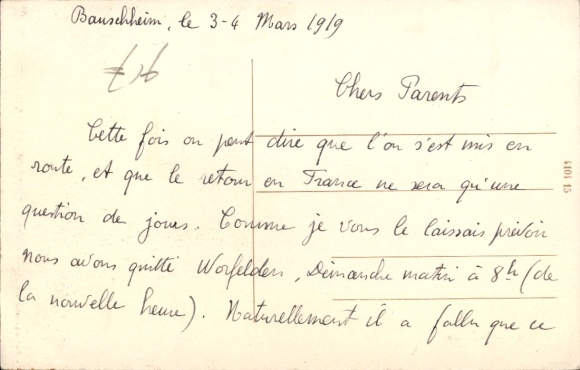 Bauschheim, le 3-4 Mars 1919
Chers Parents
Cette fois on peut dire que l'on s'est mis en
route, et que le retour en France ne sera qu'une
question de jours. Comme je vous le laissais prévoir
nous avons quitté Worfelden, Dimanche matin à 8h (de
la nouvelle heure). Naturellement il a fallu que ce